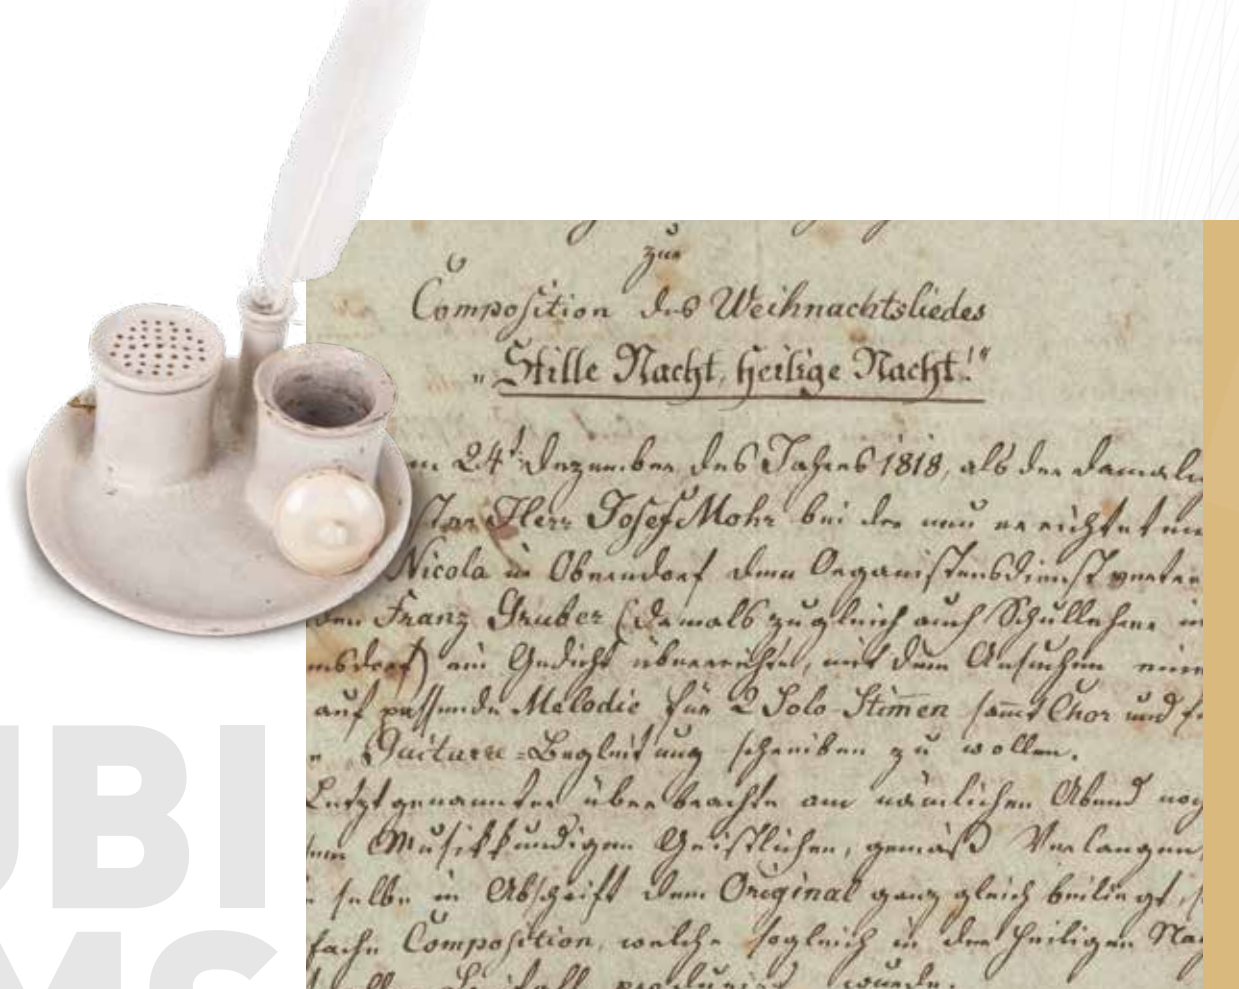 zur
Composition des Weihnachtsliedes
„Stille Nacht, heilige Nacht!“
m 24t Dezember des Jahres 1818, als der damali
Herr Josef Mohr bei der neu errichteten
Nicola in Oberndorf dem Organistensdienst vertre
den Franz Gruber (damals zugleich auch Schullehrer in
nsdorf) ein Gedicht überreichte, mit dem Ansuchen eine
auf passende Melodie für 2 Solo-Stim̄en sam̄t Chor und f
Guitarre-Begleitung schreiben zu wollen.
Letztgenannter überbrachte am nämlichen Abend noch
sem Musikkundigen Geistlichen, gemäß Verlangen,
selbe in Abschrift dem Original ganz gleich beiliegt, s
fache Composition, welche sogleich in der heiligen Na
Beifall produzirt wurde.
UBI
MS